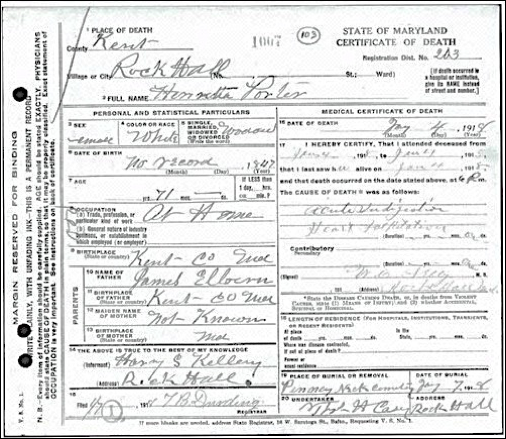 1 PLACE OF DEATH
County Kent
1007
103
STATE OF MARYLAND
CERTIFICATE OF DEATH
Registration Dist. No. 203
Village or City Rock Hall (No. St.; Ward)
(If death occurred in a hospital or institution, give its NAME instead of street and number.)
2 FULL NAME Henrietta Porter
PERSONAL AND STATISTICAL PARTICULARS
3 SEX
emale
4 COLOR OR RACE
White
5 SINGLE, MARRIED, WIDOWED OR DIVORCED
Widowed
6 DATE OF BIRTH
No record 1847
(Month) (Day) (Year)
7 AGE
71
If LESS than 1 day, hrs. or min.?
8 OCCUPATION
(a) Trade, profession, or particular kind of work
At Home
(b) General nature of industry, business, or establishment in which employed (or employer)
9 BIRTHPLACE
(State or country)
Kent Co Md
PARENTS
10 NAME OF FATHER
James Elburn
11 BIRTHPLACE OF FATHER
(State or country)
Kent Co Md
12 MAIDEN NAME OF MOTHER
Not Known
13 BIRTHPLACE OF MOTHER
(State or country)
Md
14 THE ABOVE IS TRUE TO THE BEST OF MY KNOWLEDGE
(Informant) Harry S Kelley
(Address) Rock Hall
15
Filed 191
1
MEDICAL CERTIFICATE OF DEATH
16 DATE OF DEATH
Jan 1918
(Month) (Day) (Year)
17 I HEREBY CERTIFY, That I attended deceased from
that I last saw h alive on
and that death occurred on the date stated above, at m.
The CAUSE OF DEATH was as follows:
Acute Indigestion
Heart
(Duration) yrs. mos. ds.
Contributory
Secondary
(Duration) yrs. mos. ds.
(Signed) M. D.
(Address) Rock Hall Md
*State the DISEASE CAUSING DEATH, or, in deaths from VIOLENT CAUSES, state (1) MEANS OF INJURY; and (2) whether ACCIDENTAL, SUICIDAL or HOMICIDAL.
18 LENGTH OF RESIDENCE (FOR HOSPITALS, INSTITUTIONS, TRANSIENTS, OR RECENT RESIDENTS)
Where was disease contracted, if not at place of death?
Former or usual residence
19 PLACE OF BURIAL OR REMOVAL
DATE OF BURIAL
Piney Neck Jan 7 1918
20 UNDERTAKER
ADDRESS
Rock Hall
If more blanks are needed, address State Registrar, 16 W. Saratoga St., Balto., Requesting V. S. No. 1.
MARGIN RESERVED FOR BINDING
WRITE PLAINLY, WITH UNFADING INK—THIS IS A PERMANENT RECORD
N. B.—Every item of information should be carefully supplied. AGE should be stated EXACTLY. PHYSICIANS should state CAUSE OF DEATH in plain terms, so that it may be properly classified. Exact statement of OCCUPATION is very important. See instructions on back of certificate.
V. S. No. 1.